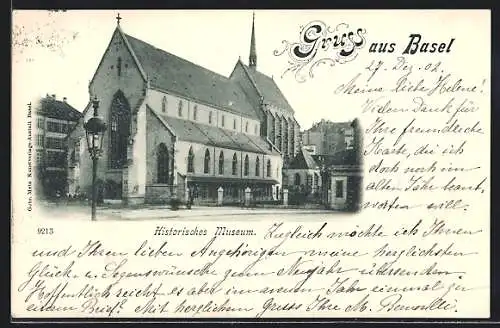 Gruss aus Basel
27. Dez. 02.
Meine liebe Helene!
Vielen Dank für
Ihre freundliche
Karte, die ich
doch noch im
alten Jahr beant-
worten will.
Gebr. Metz Kunstverlags-Anstalt Basel.
9213
Historisches Museum.
Zugleich möchte ich Ihnen
und Ihren lieben Angehörigen meine herzlichsten
Glück- u. Segenswünsche zum Neujahr
Hoffentlich reicht es aber in neuem Jahr einmal zu
einem Brief! Mit herzlichem Gruss Ihre M. Bernoulli.